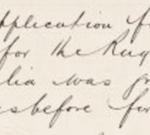 application f
for the Rug
lia was gr
sbefore for